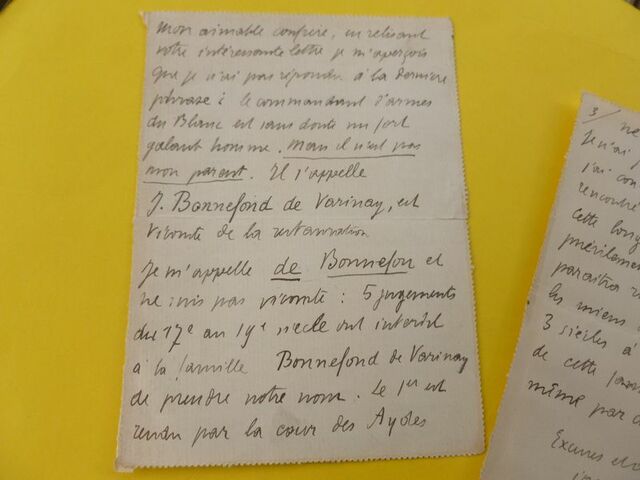 mon aimable confrère, en relisant
votre intéressante lettre je m'aperçois
que je n'ai pas répondu à la dernière
phrase : le commandant d'armes
du Blanc est sans doute un fort
galant homme. Mais il n'est pas
mon parent. Il s'appelle
J. Bonnefond de Varinay, est
vicomte de la restauration
Je m'appelle de Bonnefon et
ne suis pas vicomte : 5 jugements
du 17e au 19e siècle ont interdit
à la famille Bonnefond de Varinay
de prendre notre nom. Le 1er est
rendu par la cour des Aydes
3 / ne
Je n'ai
j'ai con
rencontré
Cette long
puérilement
paraîtra
les miens
3 siècles à
de cette
même par
Excusez